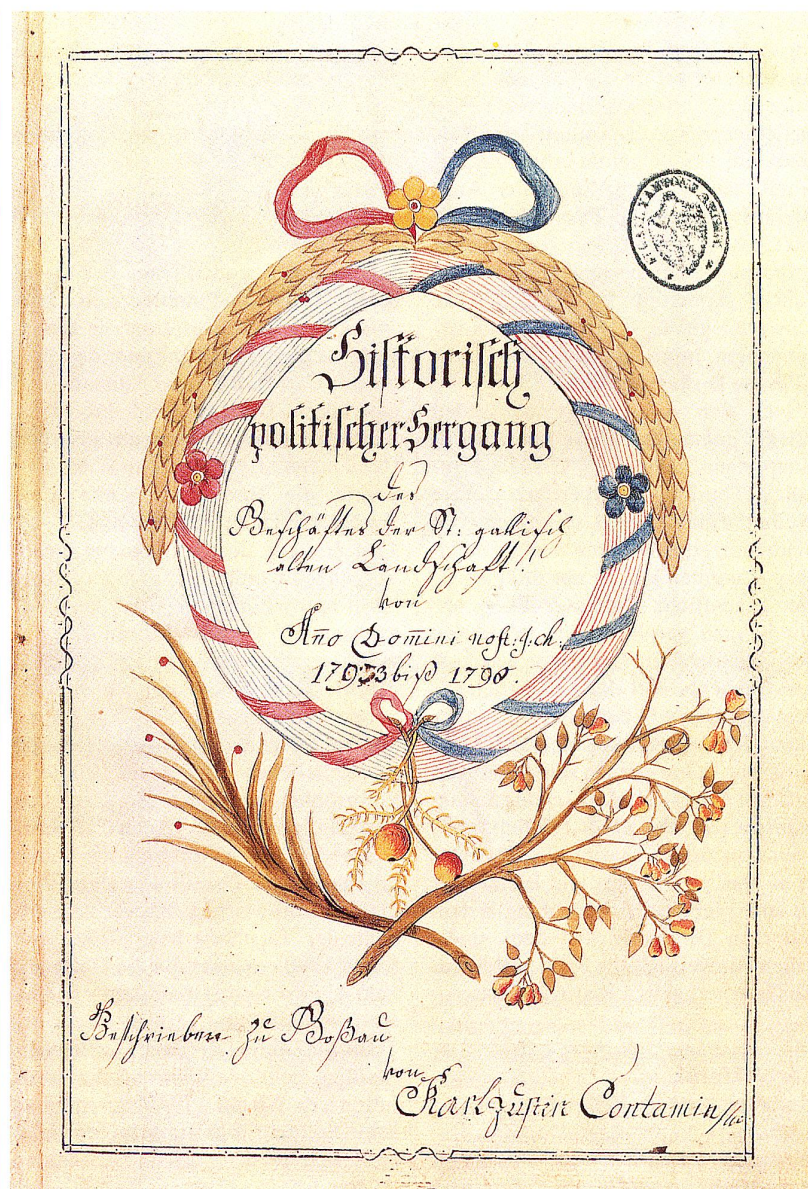 Historisch
politischer Hergang
des
Geschäftes der St: gallisch
alten Landschaft!
von
Año Domini nost: J: ch:
1793 biß 1798.
Beschrieben zu Goßau
von
Karl Justin Contamin